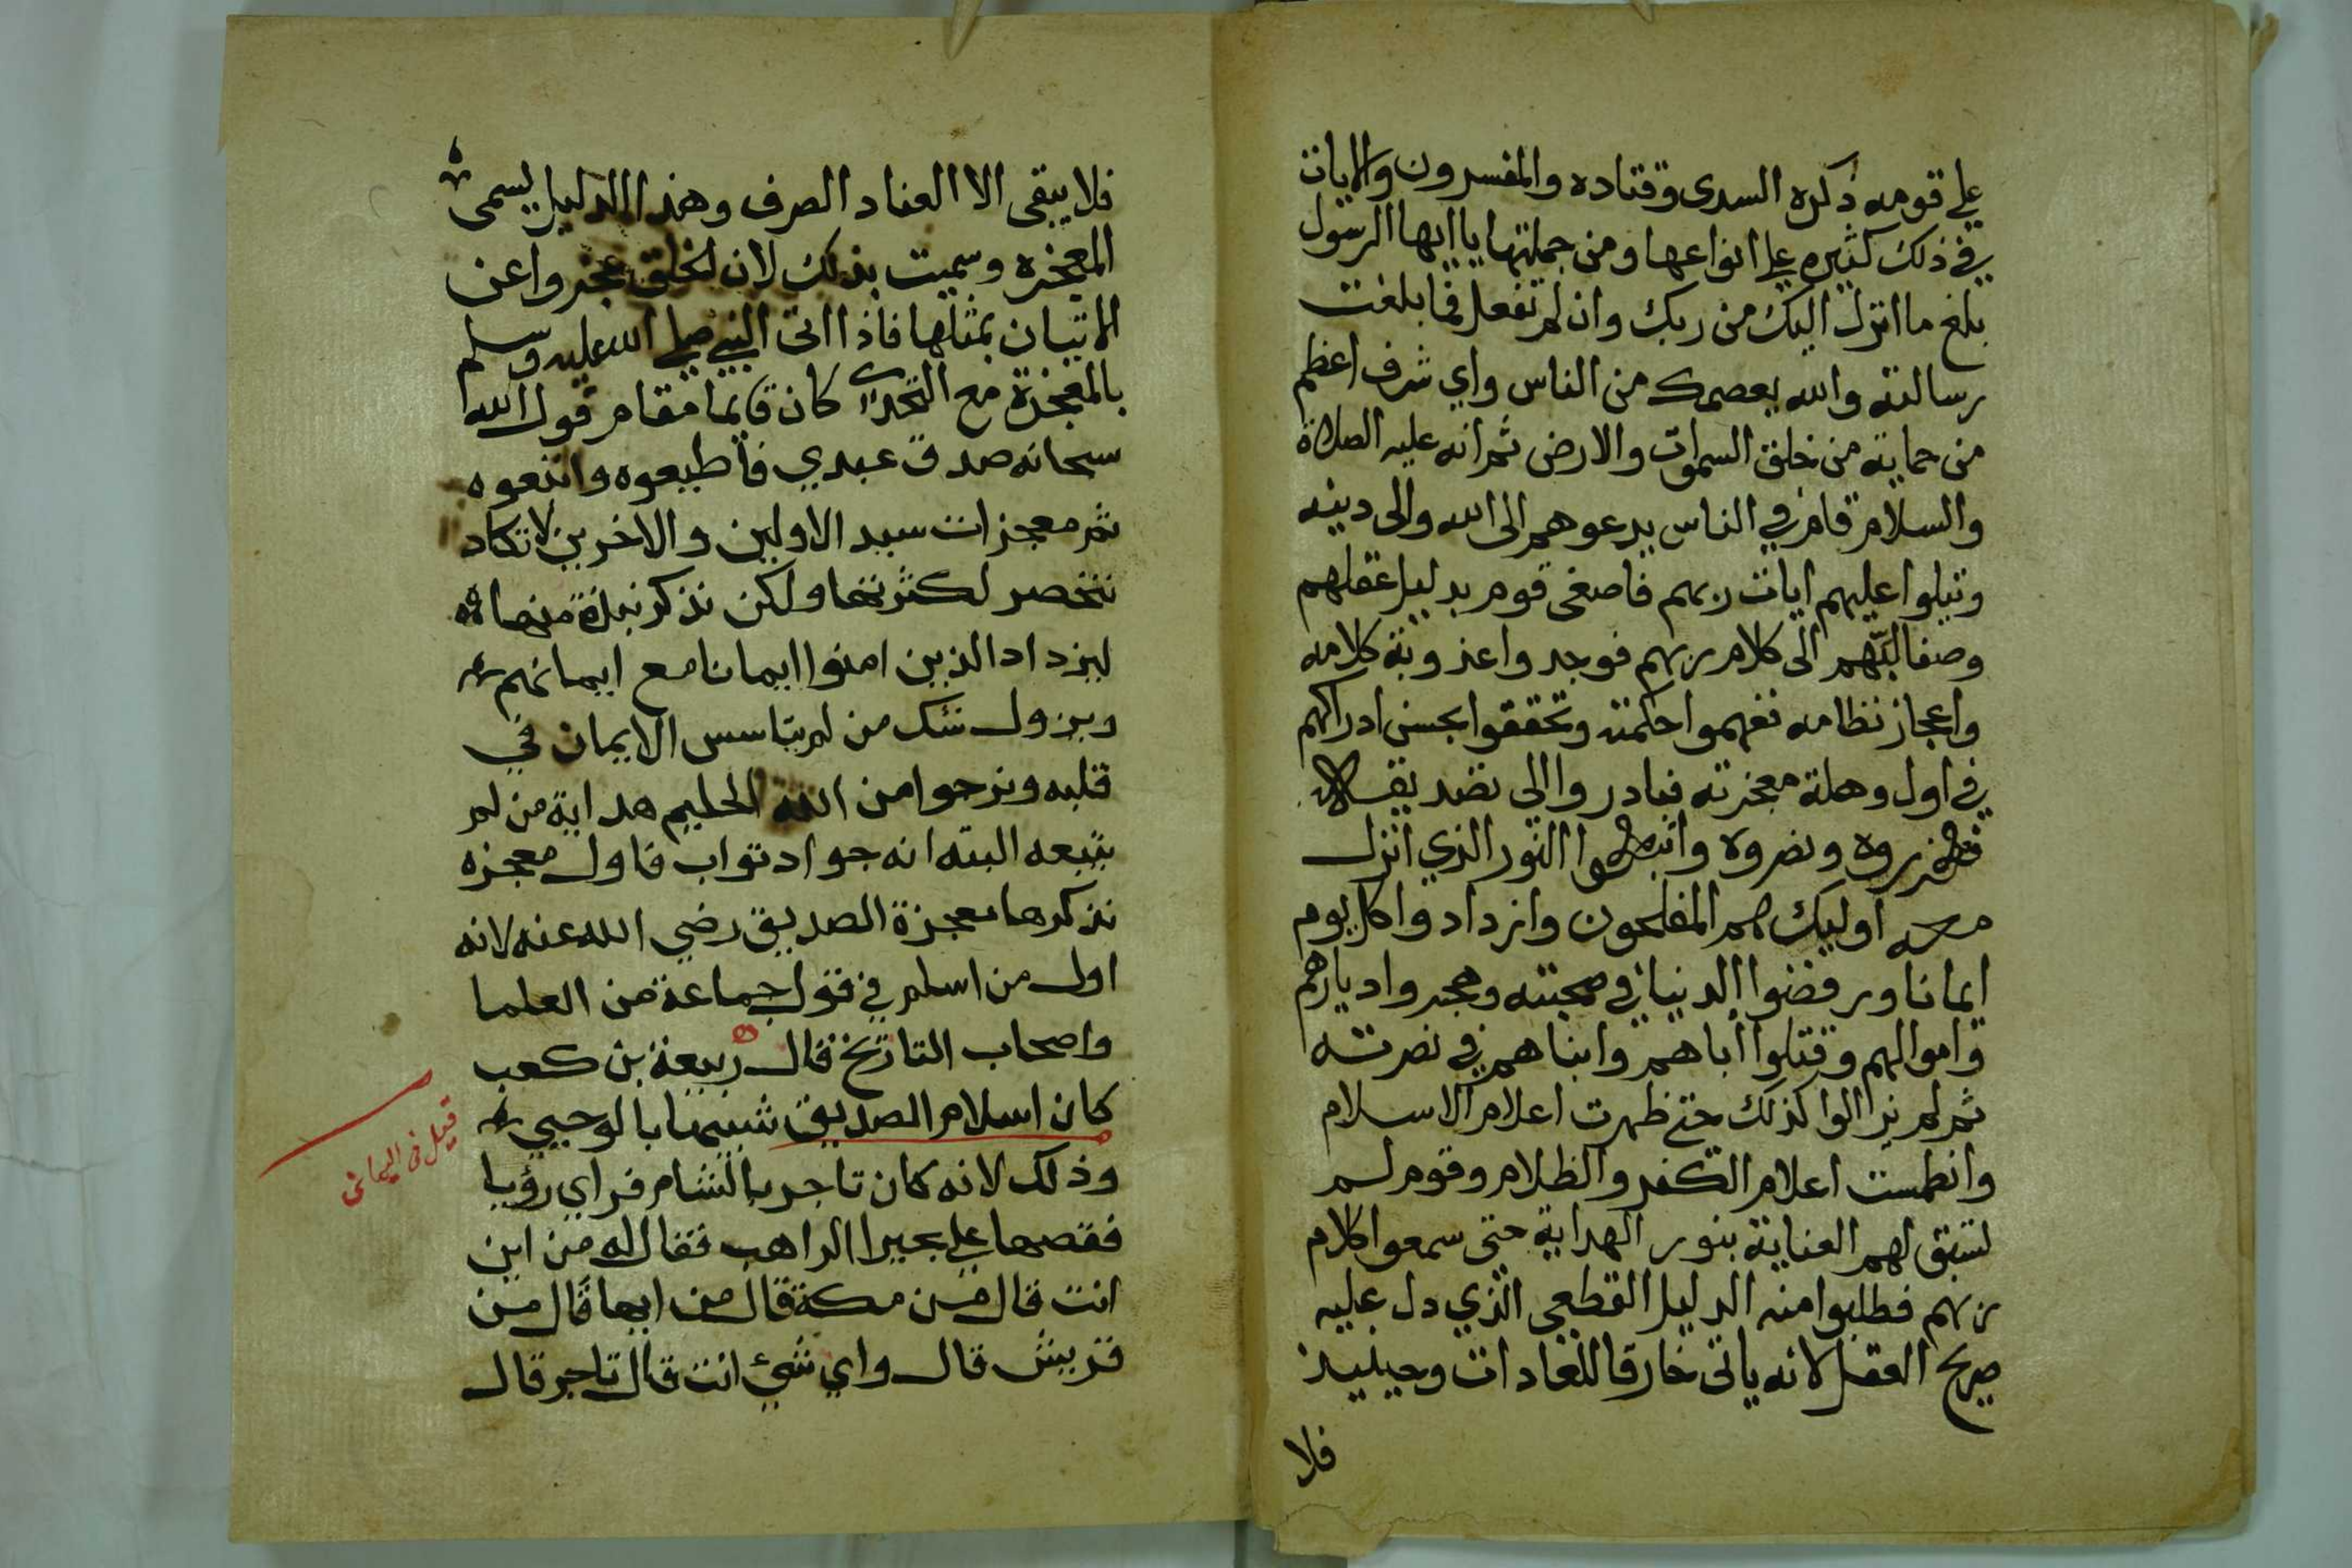 علي قومه ذكره السدى وقتاده والمفسرون والايات
في ذلك كثيره علي انواعها ومن جملتها يا ايها الرسول
بلغ ما انزل اليك من ربك وان لم تفعل فما بلغت
رسالته والله يعصمك من الناس واي شرف اعظم
من حماية من خلق السموات والارض ثم انه عليه الصلاة
والسلام قام في الناس يدعوهم الى الله والى دينه
ويتلوا عليهم ايات ربهم فاصغى قوم بدليل عقلهم
وصفا لبّهم الى كلام ربهم فوجدوا عذوبة كلامه
واعجاز نظامه ففهموا حكمته وتحققوا بحسن ادراكهم
في اول وهلة معجزته فبادروا الي تصديقه
فعزروه ونصروه واتبعوا النور الذي انزل
معه اوليك هم المفلحون وازدادوا كل يوم
ايمانا ورفضوا الدنيا في محبته وهجروا ديارهم
واموالهم وقتلوا اباهم وابناهم في نصرته
ثم لم يزالوا كذلك حتى ظهرت اعلام الاسلام
وانطمست اعلام الكفر والظلام وقوم لم
تسبق لهم العناية بنور الهداية حتى سمعوا كلام
ربهم فطلبوا منه الدليل القطعي الذي دل عليه
صريح العقل لانه ياتى خارقا للعادات وحينيذ
فلا
فلا يبقى الا العناد الصرف وهذا الدليل يسمى
المعجزه وسميت بذلك لان الخلق عجزوا عن
الاتيان بمثلها فاذا اتى النبي صلي الله عليه وسلم
بالمعجزة مع التحدي كان قايما مقام قول الله
سبحانه صدق عبدي فاطيعوه واتبعوه
ثم معجزات سيد الاولين والاخرين لا تكاد
تنحصر لكثرتها ولكن نذكر نبذة منها
ليزداد الذين امنوا ايمانا مع ايمانهم
ويزول شك من لم يتاسس الايمان في
قلبه ونرجوا من الله الحليم هداية من لم
يتبعه البته انه جواد تواب فاول معجزه
نذكرها معجزة الصديق رضي الله عنه لانه
اول من اسلم في قول جماعة من العلما
واصحاب التاريخ قال ربيعة بن كعب
كان اسلام الصديق شبيها بالوحيي
وذلك لانه كان تاجر بالشام فراي رؤيا
فقصها علي بحيرا الراهب فقال له من اين
انت قال من مكة قال من ايها قال من
قريش قال واي شيئ انت قال تاجر قال